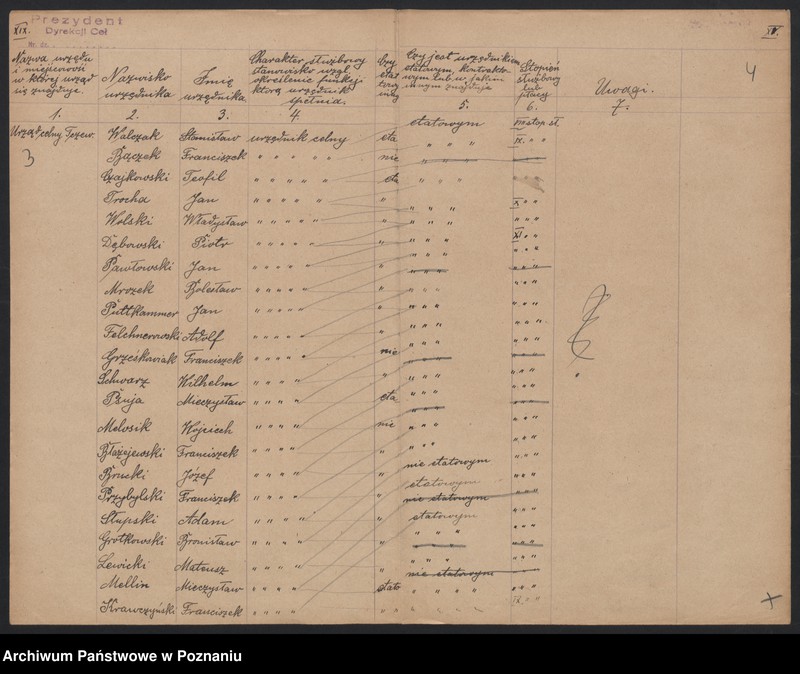 Prezydent
Dyrekcji Ceł
XIX.
4
Nazwa urzędu i miejscowość w której urząd się znajduje.
Nazwisko urzędnika
Imię urzędnika
Charakter służbowy stanowisko wzgl. określenie funkcji którą urzędnik spełnia.
Czy jest urzędnikiem etatowym, kontraktowym lub w jakim innym znajduje
Stopień służbowy lub płacy
Uwagi.
1. 2. 3. 4. 5. 6. 7.
Urząd celny Tczew. Walczak Stanisław urzędnik celny eta etatowym VIII stop. sł.
3 Bączek Franciszek " " " " " nie " " " IX. " "
Czajkowski Teofil " " " " " eta " " "
Trocha Jan " " " " " " " " " X " "
Wolski Władysław " " " " " " " " " " " "
Dębowski Piotr " " " " " " " " " XI " "
Pawłowski Jan " " " " " " " " " " "
Mrozek Bolesław " " " " " " " " " " "
Puttkammer Jan " " " " " " " " " "
Felchnerowski Adolf " " " " " " " " " " "
Grześkowiak Franciszek " " " " nie " " " " " "
Schwarz Wilhelm " " " " " " " " " " "
Pšuja Mieczysław " " " " eta " " " " " "
Melosik Wojciech " " " " nie " " " " " "
Błażejewski Franciszek " " " " " nie etatowym " " "
Brucki Józef " " " " " etatowym " " "
Przybylski Franciszek " " " " " nie etatowym " " "
Słupski Adam " " " " " etatowym " " "
Grotkowski Bronisław " " " " " " " " " " "
Lewicki Mateusz " " " " " nie etatowym " " "
Mellin Mieczysław " " " " etato " " " " " " "
Krawczyński Franciszek " " " " " " " " " IX " "
Archiwum Państwowe w Poznaniu